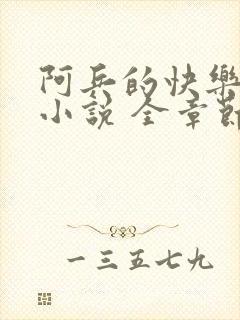 阿兵的快樂
小說 全章節
一三五七九